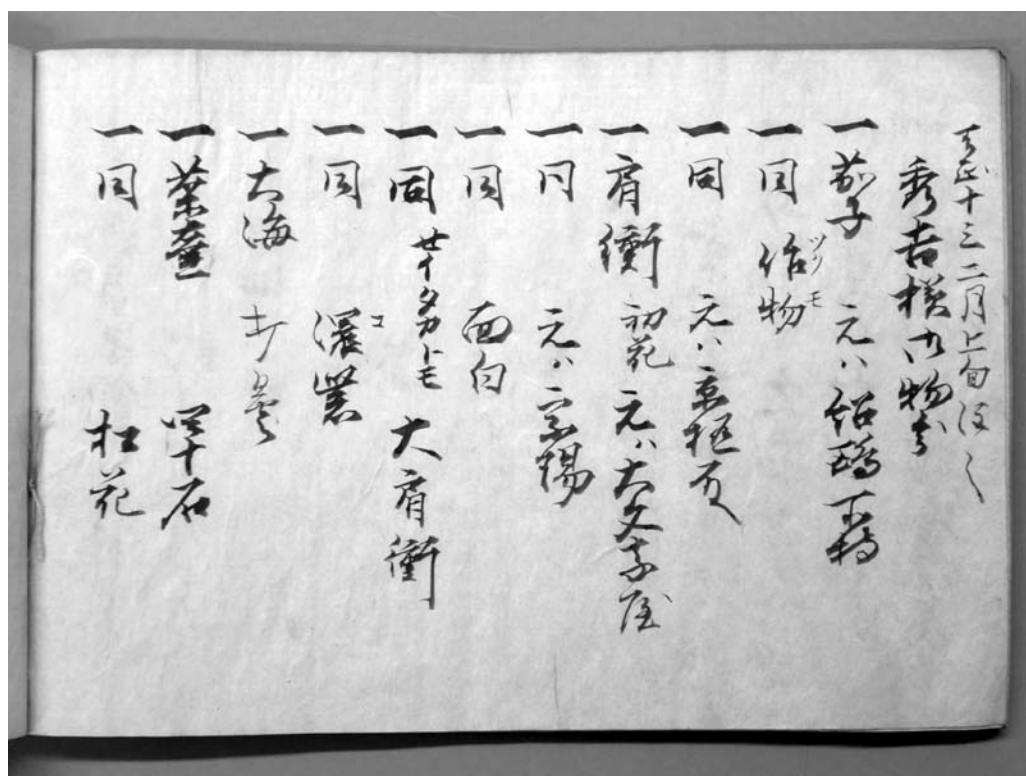 天正十三二月上旬
秀吉様御物分
一 茄子 元ハ紹鴎所持
一 同 作物 ツクモ
一 同 元ハ京極
一 肩衝 初花 元ハ大文字屋
一 同 元ハ宗陽
一 同 面白
一 同 せイタカトモ 大肩衝
一 同
一 大海
一 葉壷 四十石
一 同 松花